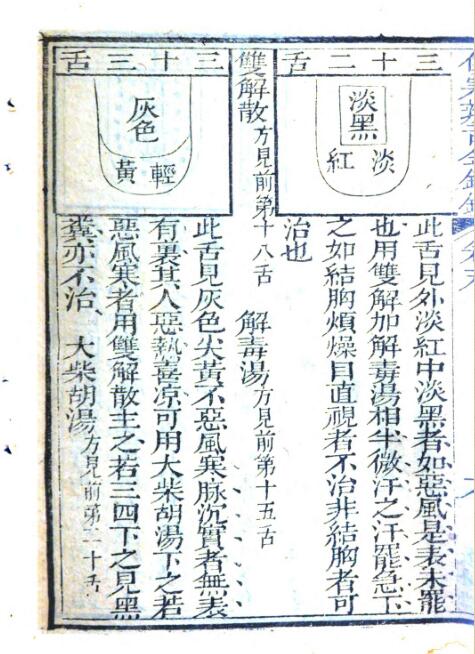 三十二舌
淡黑
淡紅
此舌見外淡紅中淡黑者如惡風是表未罷
也用雙解加解毒湯相半微汗之汗罷急下
之如結胸煩燥目直視者不治非結胸者可
治也
雙解散方見前第十八舌 解毒湯方見前第十五舌
三十三舌
灰色
輕黃
此舌見灰色尖黃不惡風寒脉沉實者無表
有裏其人惡熱喜凉可用大柴胡湯下之若
惡風寒者用雙解散主之若三四下之見黑
糞亦不治 大柴胡湯方見前第二十舌